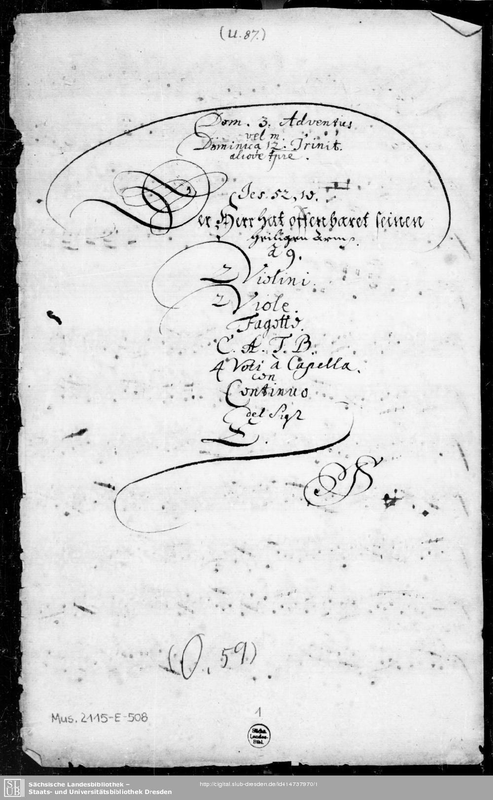 (U. 87.)
Dom. 3. Adventus
vel m
Dominica 12. Trinit.
aliove tpre.
Jes. 52, 10.
Der Herr hat offenbaret seinen
heiligen Arm.
à 9.
2 Violini.
2 Viole.
Fagotto.
C. A. T. B.
4 Voci à Capella.
con
Continuo
del Sigr
E.
(O, 59)
Mus. 2115-E-508
1
Sächs.
Landes-
Bibl.
SLUB
Sächsische Landesbibliothek –
Staats- und Universitätsbibliothek Dresden
http://digital.slub-dresden.de/id414737970/1